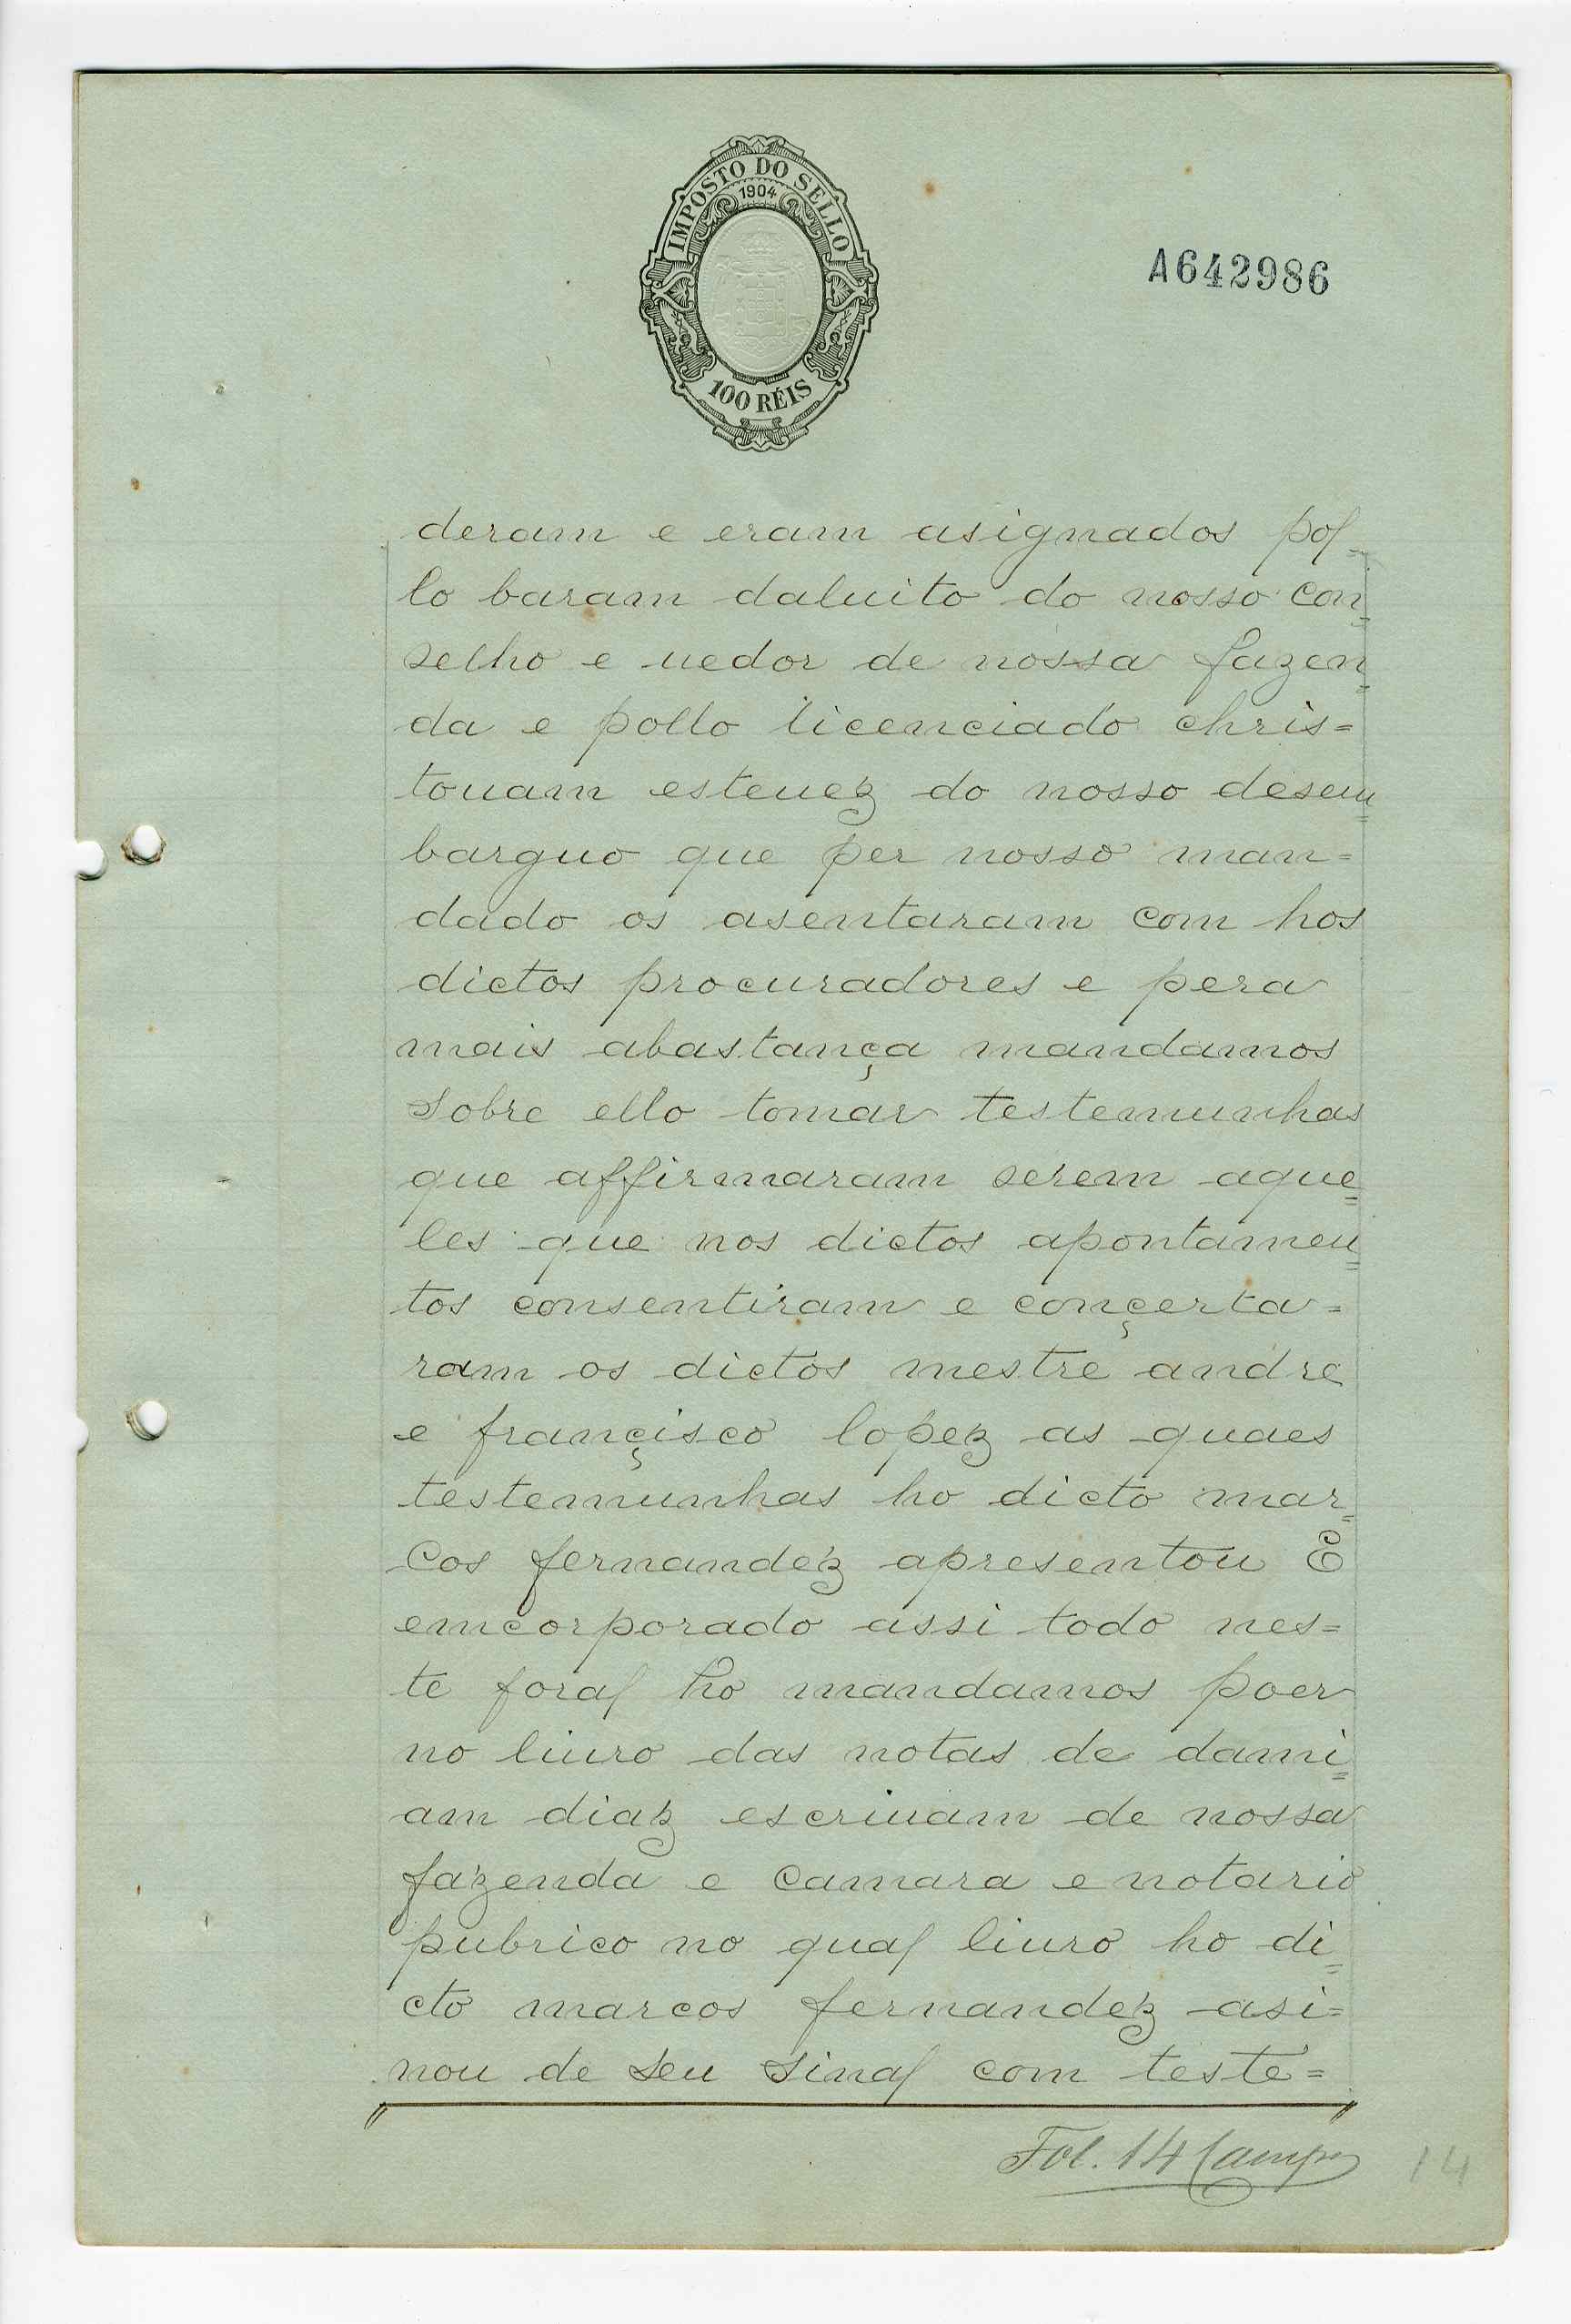 IMPOSTO DO SELLO
1904
100 RÉIS
A642986
deram e eram asignados pol=
lo baram daluito do nosso con=
selho e uedor de nossa fazen=
da e pollo licenciado chris=
touam esteuez do nosso desem=
barguo que per nosso man=
dado os asentaram com hos
dictos procuradores e pera
mais abastança mandamos
sobre ello tomar testemunhas
que affirmaram serem aque=
les que nos dictos apontamen=
tos consentiram e conçerta=
ram os dictos mestre andre
e françisco lopez as quaes
testemunhas ho dicto mar=
cos fernandez apresentou E
emcorporado assi todo nes=
te foral ho mandamos poer
no liuro das notas de dami=
am diaz escriuam de nossa
fazenda e camara e notario
pubrico no qual liuro ho di=
cto marcos fernandez asi=
nou de seu sinal com teste=
Fol. 14 Campos
14